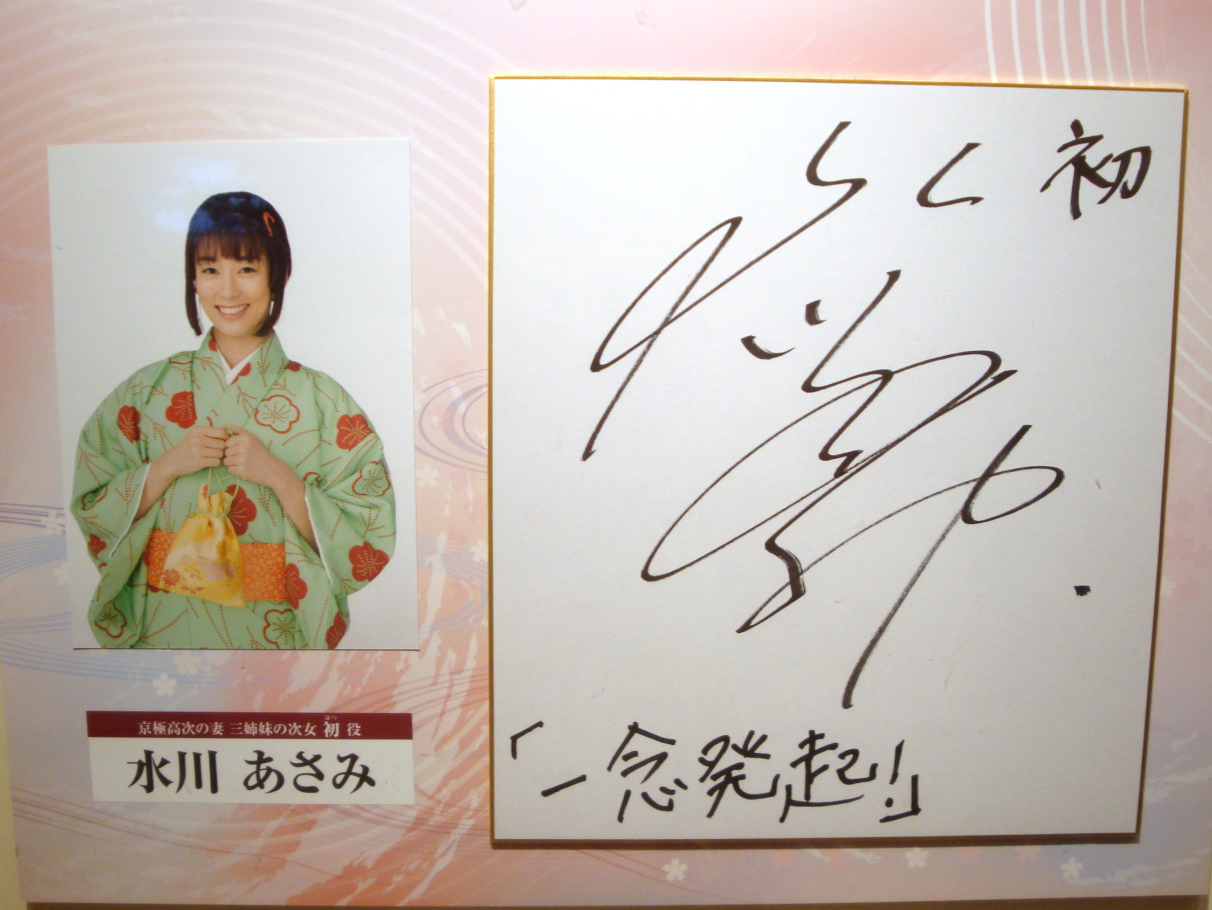 京極高次の妻 三姉妹の次女 初 役
はつ
水川 あさみ
初
「一念発起!」